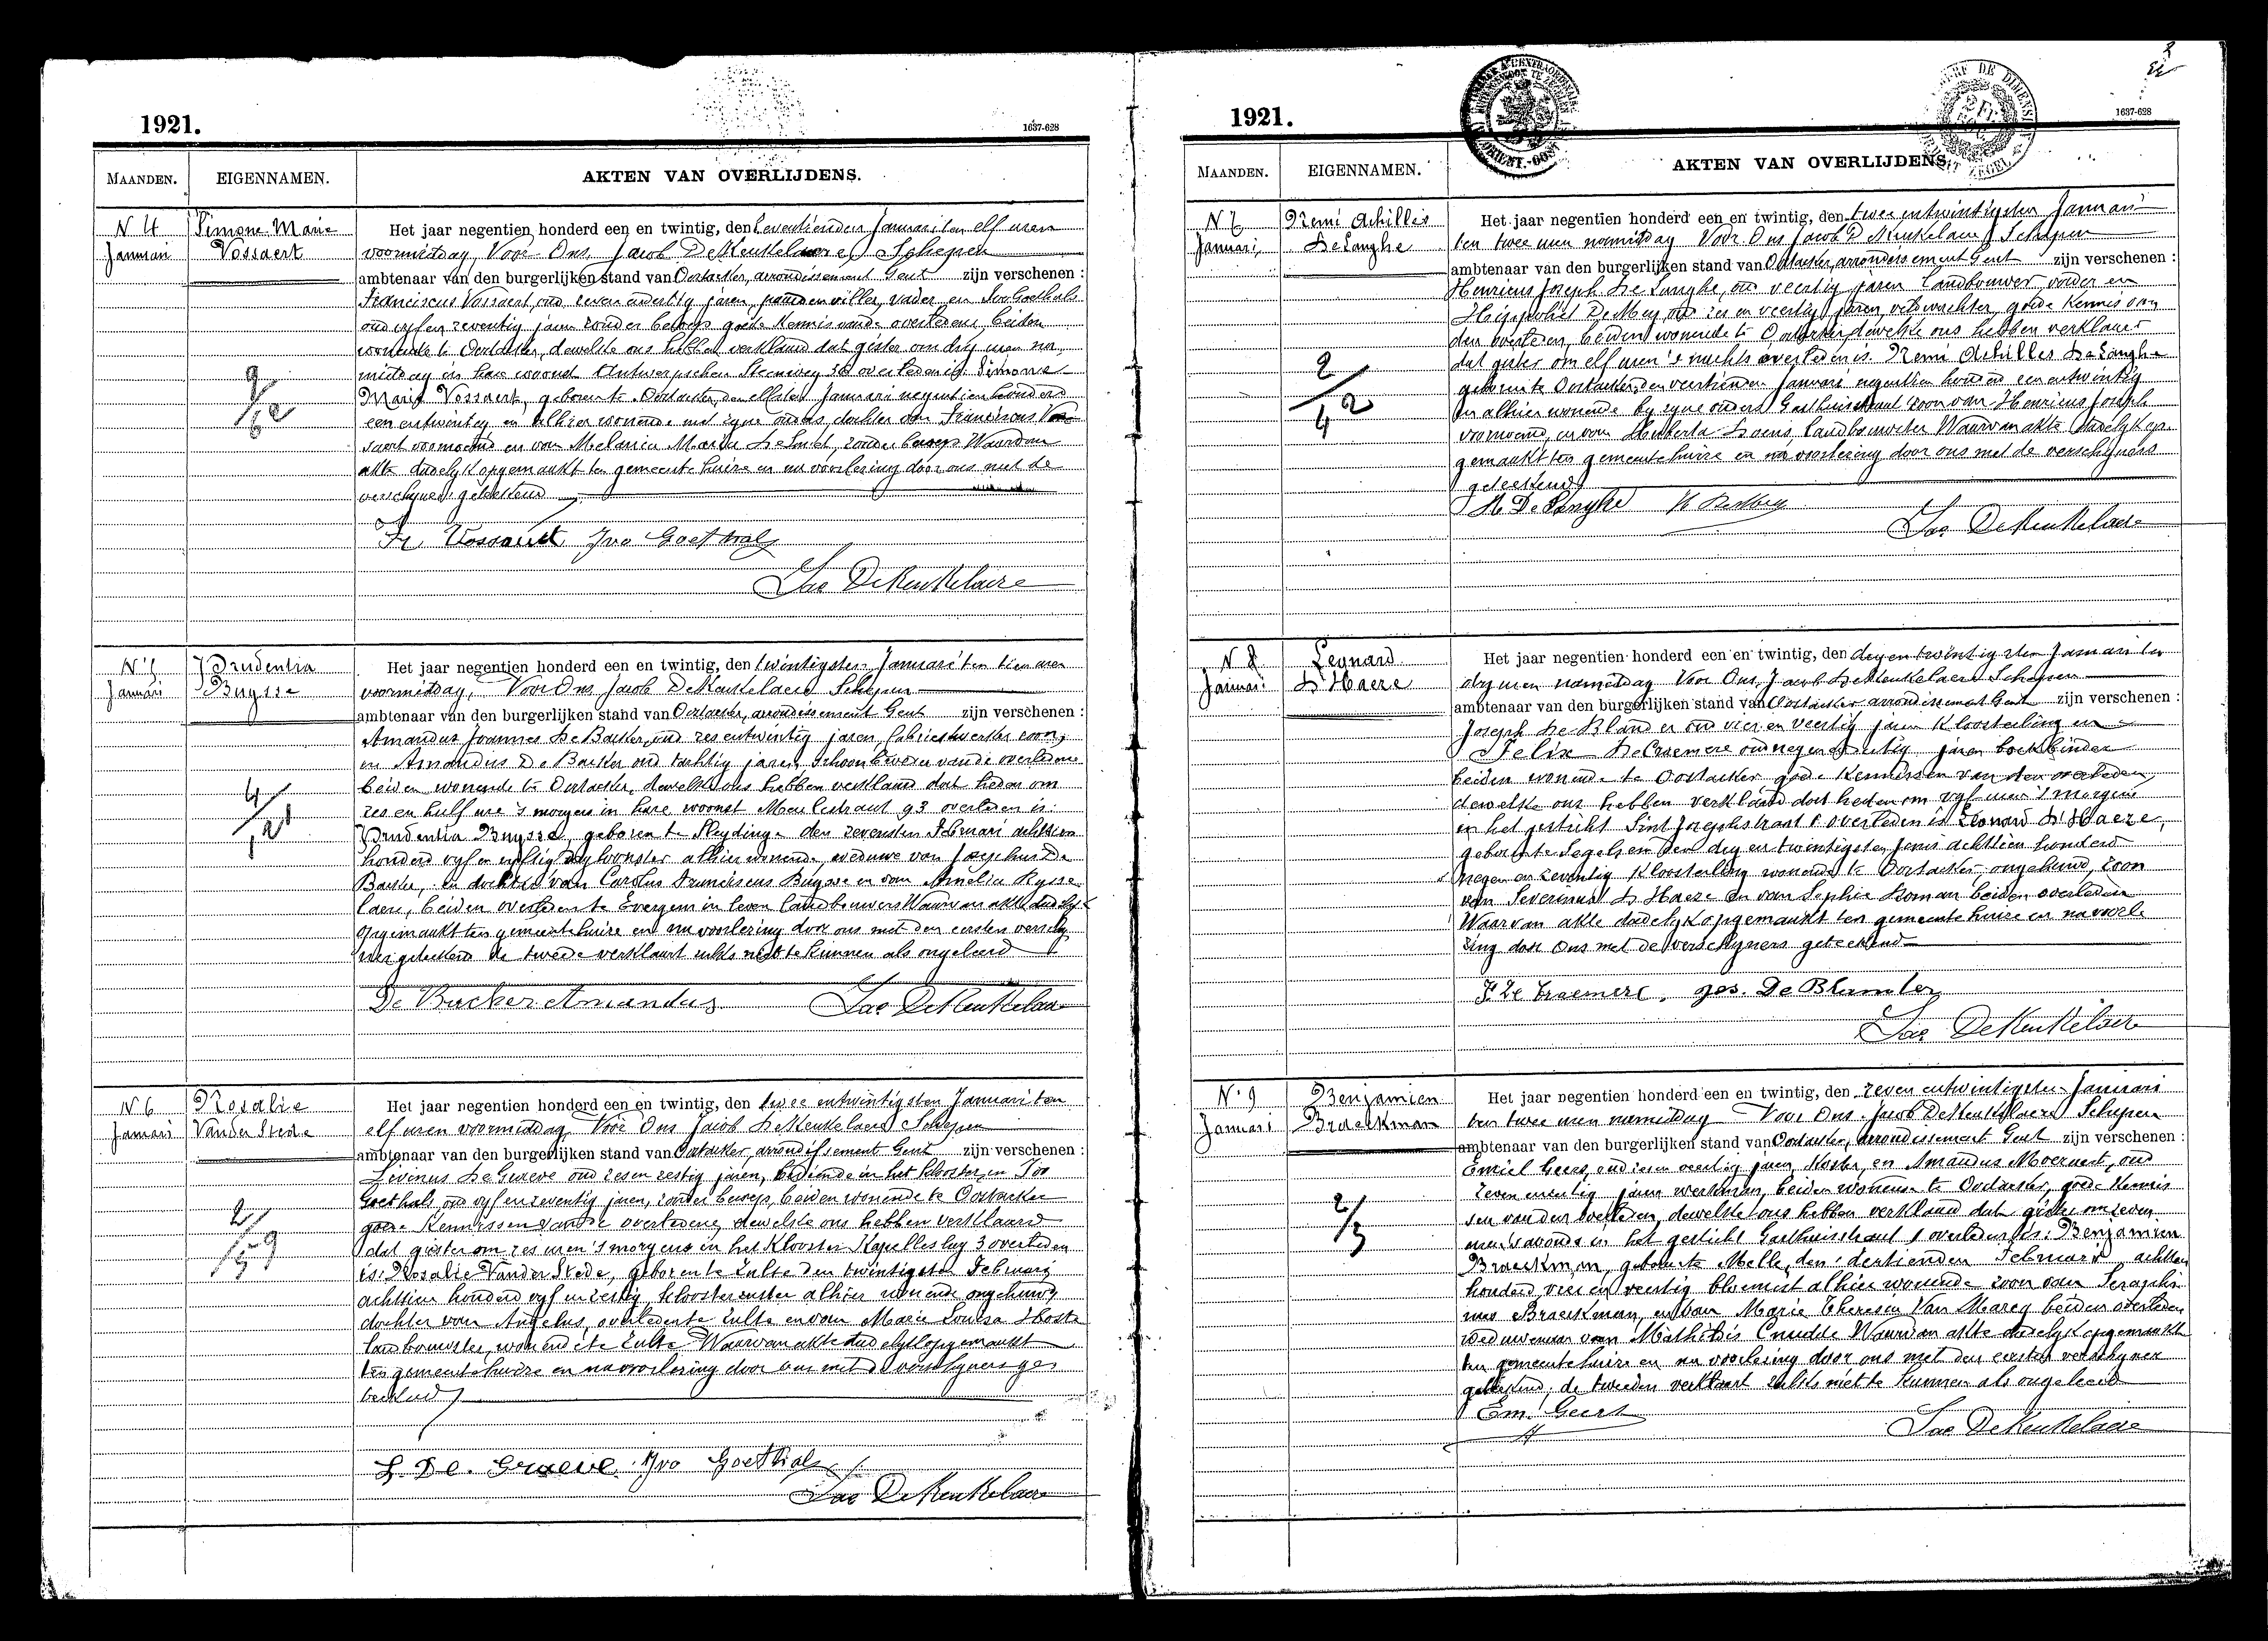 1921.
1637-628
MAANDEN. EIGENNAMEN. AKTEN VAN OVERLIJDENS.
N 4 Simone Marie
Januari Vossaert
Het jaar negentien honderd een en twintig, den zeventienden Januari ten elf uren
voormiddag, Voor Ons, Jacob De Keukelaere, Schepen
ambtenaar van den burgerlijken stand van Oostacker, arrondissement Gent zijn verschenen :
Franciscus Vossaert, oud zeven en dertig jaren, vader, en Ivo Goethals
oud vyf en zeventig jaren zonder beroep goede kennis van de overledene, beiden
wonende te Oostacker, dewelke ons hebben verklaard dat gister om dry uren na
middag in hare woonst Antwerpschen Steenweg 36 overleden is: Simone
Maria Vossaert, geboren te Oostacker den elfsten Januari negentien honderd
een en twintig en alhier wonende met zyne ouders dochter van Franciscus Vos
saert voornoemd en van Melania Maria De Smet, zonder beroep Waarvan
akte dadelyk opgemaakt ten gemeentehuize en na voorlezing door ons met de
verschyners geteekend
Fr Vossaert Ivo Goethals
Jac DeKeukelaere
N 5 Prudentia
Januari Buysse
4/21
Het jaar negentien honderd een en twintig, den twintigsten Januari ten tien uren
voormiddag, Voor Ons Jacob De Keukelaere Schepen
ambtenaar van den burgerlijken stand van Oostacker, arrondissement Gent zijn verschenen :
Amandus Joannes De Backer, oud zes en twintig jaren, fabriekwerker zoon,
en Amandus De Backer oud tachtig jaren, schoonbroeder van de overledene
beiden wonende te Oostacker, dewelke ons hebben verklaard dat heden om
zes en half ure 's morgens in hare woonst Meulestraat 93 overleden is:
Prudentia Buysse, geboren te Sleydinge den zevensten Februari achttien
honderd vyf en vyftig alhier wonende, weduwe van Josephus De
Backer, en dochter van Carolus Franciscus Buysse en van Amelia Rysse
laere, beiden overleden te Evergem in leven landbouwers Waarvan akte dadelyk
opgemaakt ten gemeentehuize en na voorlezing door ons met den eersten verschy
ner geteekend de tweede verklaart zulks niet te kunnen als ongeleerd
De Backer Amandus Jac DeKeukelaere
N 6 Rosalie
Januari Vander Stede
2/59
Het jaar negentien honderd een en twintig, den twee entwintigsten Januari ten
elf uren voormiddag, Voor Ons Jacob De Keukelaere Schepen
ambtenaar van den burgerlijken stand van Oostacker, arrondissement Gent zijn verschenen :
Livinus De Graeve oud zes en zestig jaren, bediende in het klooster, en Ivo
Goethals oud vyf en zeventig jaren, zonder beroep, beiden wonende te Oostacker
goede kennissen van de overledene, dewelke ons hebben verklaard
dat gister om zes uren 's morgens in het klooster Kapelleslag 3 overleden
is: Rosalie Vander Stede, geboren te Zulte den twintigsten Februari
achttien honderd vyf en zestig, kloosterzuster alhier wonende ongehuwd
dochter van Angelus, overleden te Zulte en van Marie Louisa Hoste
landbouwster, wonende te Zulte Waarvan akte dadelyk opgemaakt
ten gemeentehuize en na voorlezing door ons met de verschyners ge
teekend
L. De. Graeve. Ivo Goethals
Jac DeKeukelaere
1921.
1637-628
MAANDEN. EIGENNAMEN. AKTEN VAN OVERLIJDENS.
N 7 Remi Achilles
Januari De Langhe
2/42
Het jaar negentien honderd een en twintig, den twee entwintigsten Januari
ten twee uren namiddag Voor Ons Jacob De Keukelaere Schepen
ambtenaar van den burgerlijken stand van Oostacker, arrondissement Gent zijn verschenen :
Henricus Joseph De Langhe, oud veertig jaren landbouwer vader en
Hippoliet De Mey oud zes en veertig jaren veldwachter, goede kennis van
den overleden, beiden wonende te Oostacker, dewelke ons hebben verklaard
dat gister om elf uren 's nachts overleden is. Remi Achilles De Langhe
geboren te Oostacker, den veertienden Januari negentien honderd een entwintig
en alhier wonende by zyne ouders Gasthuisstraat zoon van Henricus Joseph
voornoemd, en van Huberta Loens, landbouwster Waarvan akte dadelyk op
gemaakt ten gemeentehuize en na voorlezing door ons met de verschyners
geteekend
H. De Langhe H De Mey
Jac DeKeukelaere
N 8 Leonard
Januari D'Haeze
Het jaar negentien honderd een en twintig, den dryentwintigsten Januari ten
dry uren namiddag Voor Ons, Jacob De Keukelaere Schepen
ambtenaar van den burgerlijken stand van Oostacker arrondissement Gent zijn verschenen :
Joseph De Blander oud vier en veertig jaren kloosterling en
Felix De Craemere oud negen en jaren boekbinder
beiden wonende te Oostacker goede kennissen van den overleden
dewelke ons hebben verklaard dat heden om vyf uren 's morgens
in het gesticht Sint Josephstraat overleden is Leonard D'Haeze,
geboren te den dry en twintigsten Juni achttien honderd
negen en zeventig kloosterling wonende te Oostacker ongehuwd, zoon
van Severinus D'Haeze en van Sophie beiden overleden
Waarvan akte dadelyk opgemaakt ten gemeentehuize en na voorle
zing door Ons met de verschyners geteekend
F. De Craemere. Jos. De Blander
Jac DeKeukelaere
N 9 Benjamien
Januari Braeckman
2/3
Het jaar negentien honderd een en twintig, den zeven entwintigsten Januari
ten twee uren namiddag Voor Ons Jacob De Keukelaere Schepen
ambtenaar van den burgerlijken stand van Oostacker, arrondissement Gent zijn verschenen :
Emiel Geers, oud zeven veertig jaren, Koster, en Amandus Moernaert, oud
zeven jaren werkman, beiden wonende te Oostacker, goede kennis
sen van den overleden, dewelke ons hebben verklaard dat gister om zeven
uren 's avonds in het gesticht Gasthuisstraat 1 overleden is: Benjamien
Braeckman, geboren te Melle, den dertienden Februari achttien
honderd vier en veertig bloemist alhier wonende zoon van Seraphi
nus Braeckman, en van Marie Theresia Van Marcq beiden overleden
weduwenaar van Mathildis Cnudde Waarvan akte dadelyk opgemaakt
ten gemeentehuize en na voorlezing door ons met den eersten verschyner
geteekend; de tweeden verklaart zulks niet te kunnen als ongeleerd
Em. Geers
Jac DeKeukelaere